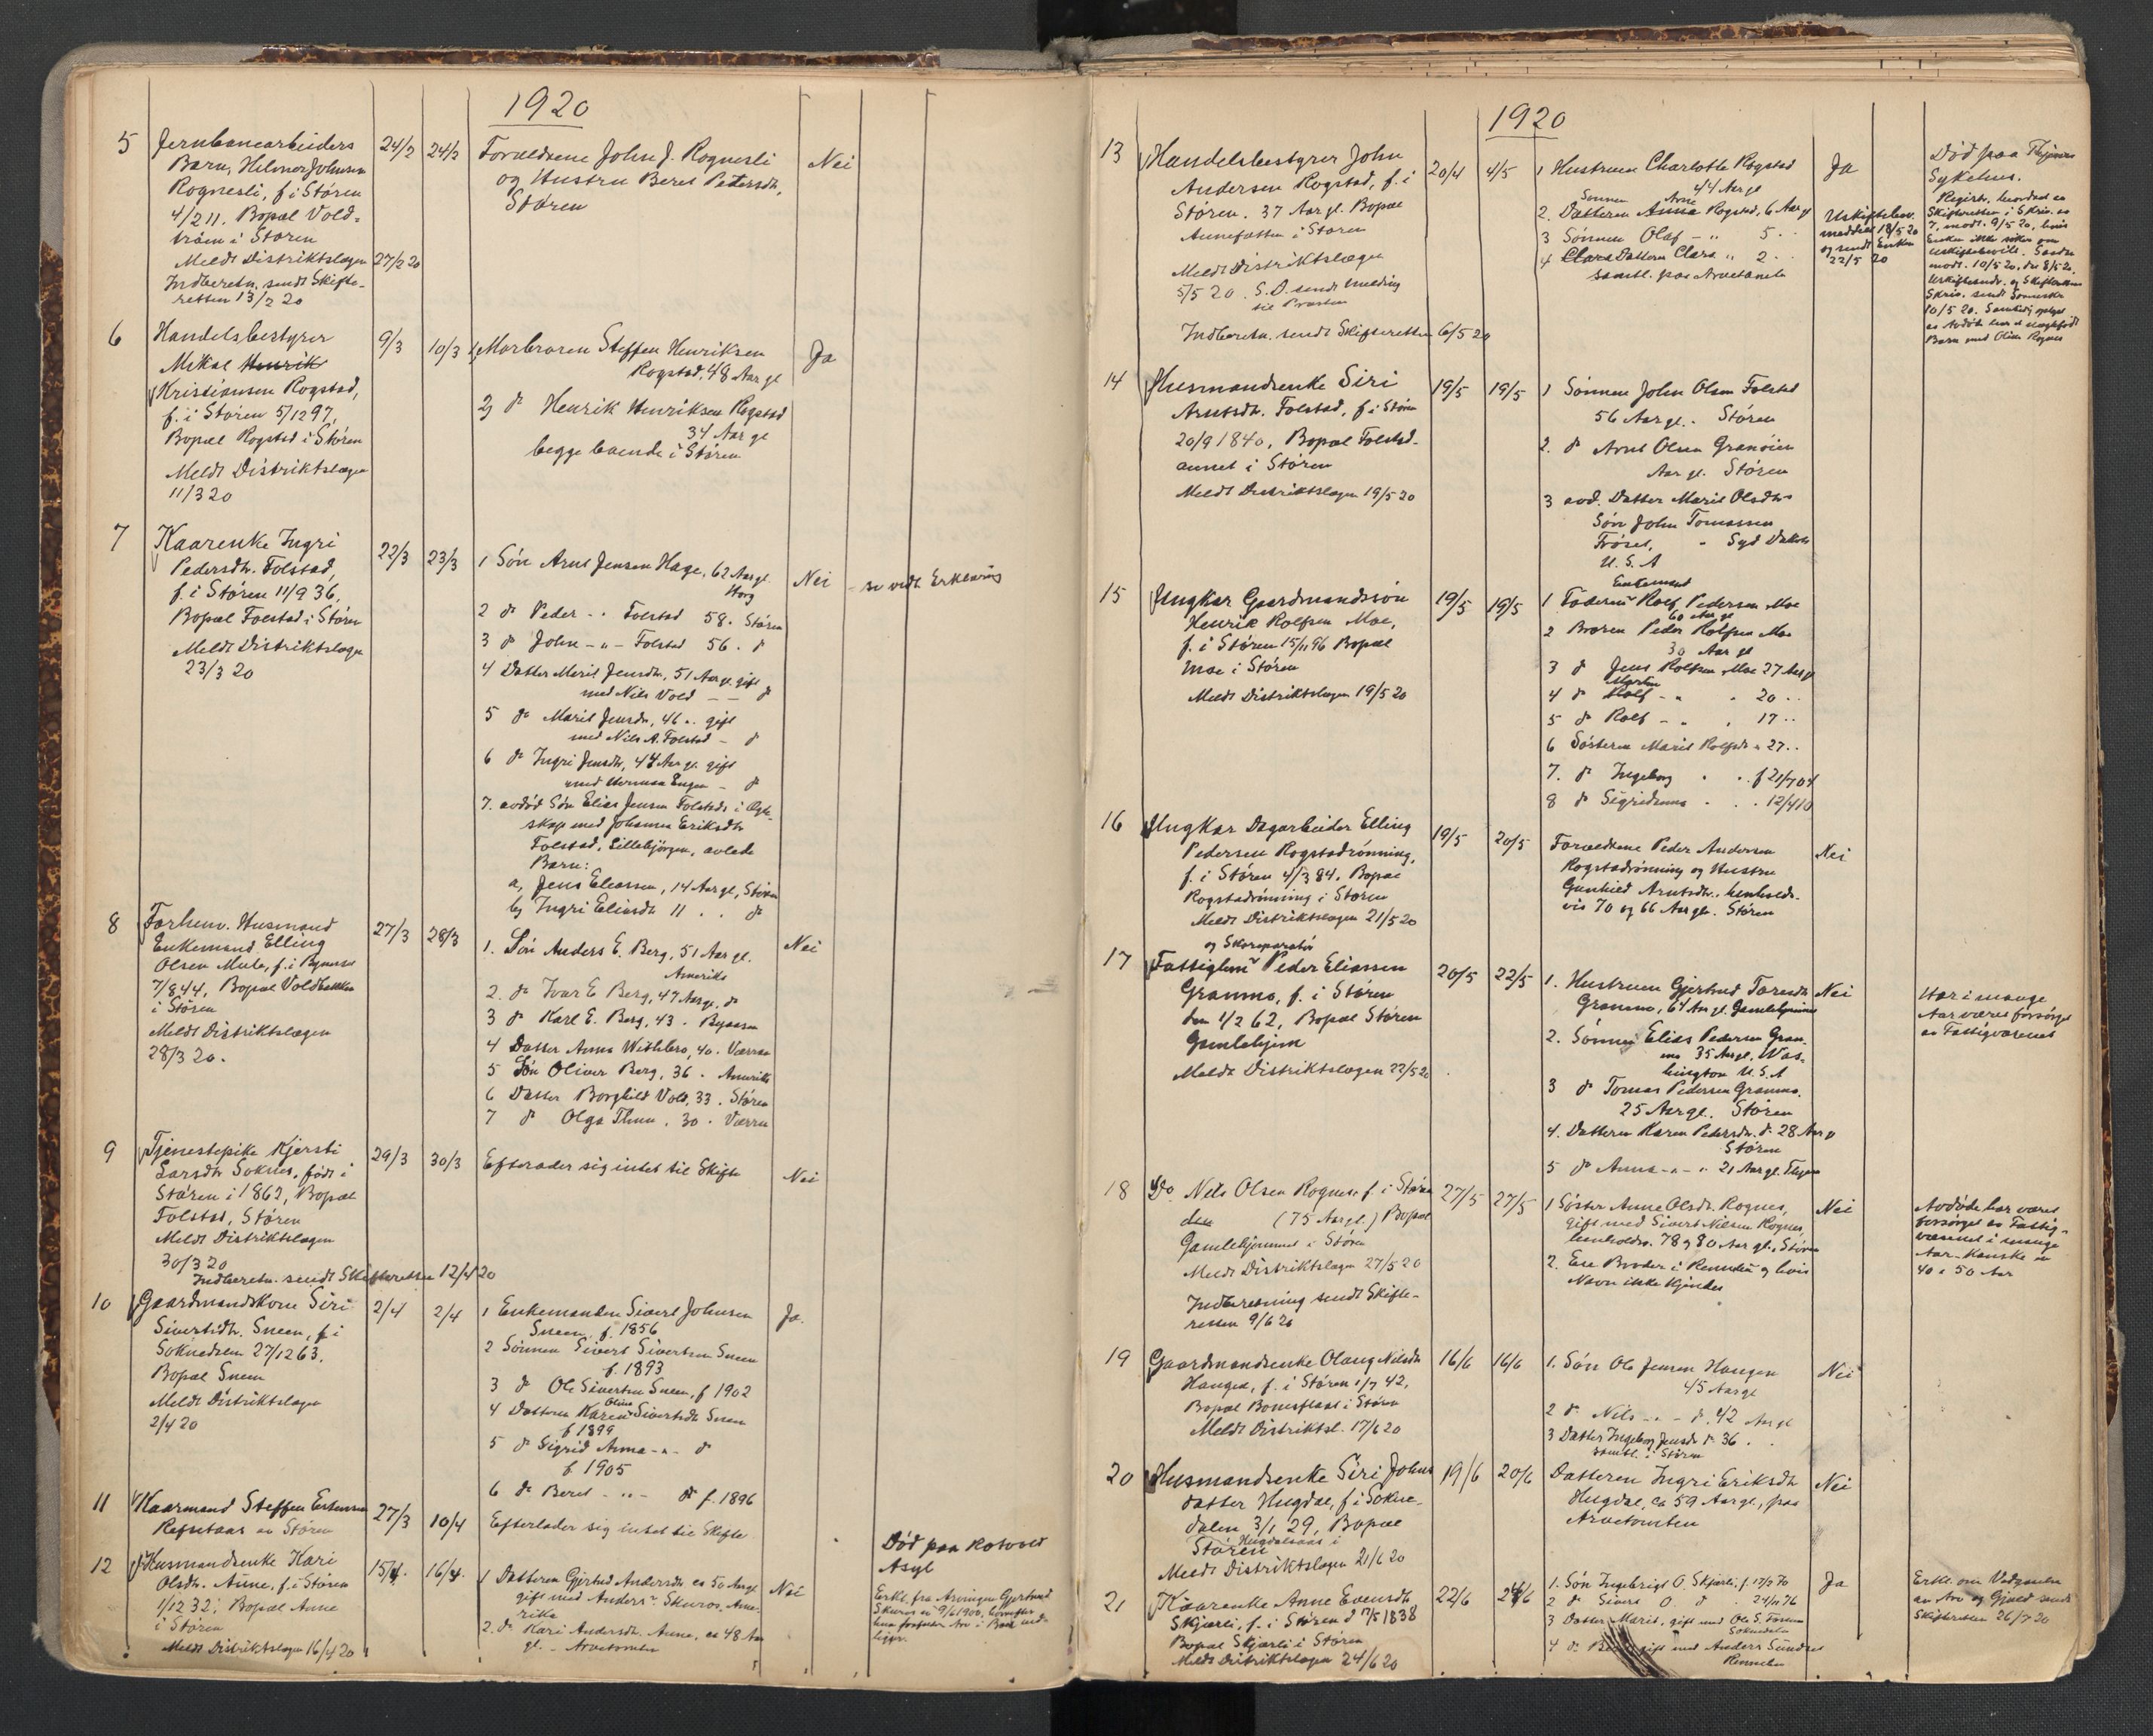 1920
5 Jernbanearbeiders 24/2 24/2 Forældrene John J. Rognesli Nei
Barn, Hilmar Johnsen og Hustru Beret Petersdtr,
Rognesli, f. i Støren Støren
4/2 11. Bopæl Vold-
trøen i Støren
Meldt Distriktslægen 27/2 20
Indberetn. sendt Skifte-
retten 13/2 20
6 Handelsbestyrer 9/3 10/3 1, Morbroren Steffen Henriksen Ja
Mikal Henrik Rogstad, 48 Aar gl
Kristiansen Rogstad,
f. i Støren 5/12 97, 2, do Henrik Henriksen Rogstad
Bopæl Rogstad i Støren 34 Aar gl
begge boende i Støren
Meldt Distriktslægen
11/3 20
7 Kaarenke Ingri 22/3 23/3 1 Søn Arnt Jensen Hage, 62 Aar gl. Nei - se vedt Erklæring
Pedersdtr. Folstad, Horg
f. i Støren 11/9 36, 2 do Peder - " Folstad 58. Støren
Bopæl Folstad i Støren 3 do John - " - Folstad 56. do
Meldt Distriktslægen 4 Datter Merit Jensdtr, 51 Aar gl. gift
23/3 20 med Nils Vold - - do
5 do Marit Jensdtr, 46 .. gift
med Nils A. Folstad - do
6 do Ingri Jensdtr, 44 Aar gl. gift
med Herman Engen - do
7. avdød Søn Elias Jensen Folstads i Egte-
skap med Johanna Eriksdtr
Folstad, Lillebjørgen, avlede
Barn:
a, Jens Eliassen, 14 Aar gl, Støren
b, Ingri Eliasdtr 11 . . do
8 Forhenv. Husmand 27/3 28/3 1. Søn Anders E. Berg, 51 Aar gl. Nei
Enkemand Elling Amerika
Olsen Mule, f. i Bynesset 2. do Ivar E Berg, 47 Aar gl. do
7/8 44, Bopæl Voldbakken 3 do Karl E. Berg, 43 . Byaasen
i Støren 4 Datter Anna 40. Værran
Meldt Distriktslægen 5 Søn Oliver Berg, 36 . Amerika
28/3 20. 6 Datter Borghild Vold, 33 . Støren
7 do Olga Thun, 30 . Værran
9 Tjenestepike Kjersti 29/3 30/3 Efterlader sig intet til Skifte Nei
Larsdtr Soknes, født i
Støren i 1862, Bopæl
Folstad, Støren
Meldt Distriktslægen
30/3 20
Indberetn. sendt Skifteretten 12/4 20
10 Gaardmandskone Siri 2/4 2/4 1 Enkemanden Sivert Johnsen Ja.
Sivertsdtr. Sneen, f. i Sneen, f. 1856
Soknedalen 27/12 63. 2 Sønnen Sivert Sivertsen Sneen
Bopæl Sneen f. 1893
Meldt Distriktslægen 3 do Ole Sivertsen Sneen, f 1902
2/4 20 4 Datteren Karen Oline Sivertsdtr Sneen
f 1899
5 do Sigrid Anna - " - do
f. 1905
6 do Beret - " - do f. 1896
11 Kaarmand Steffen Estensen 27/3 10/4 Efterlader sig intet til Skifte
Refsetaas av Støren
Død paa Rotvold
Asyl
12 Husmandsenke Kari 15/4. 16/4. 1 Datteren Gjertrud Andersdtr ca 50 Aar gl Nei
Olsdtr. Aune, f. i Støren gift med Anders Skuros, Ame-
1/12 32, Bopæl Aune rika
i Støren 2. do Kari Andersdtr. Aune, ca 48 Aar
Meldt Distriktslægen 16/4 20 gl. - Arvetomten
Erkl. fra Arvingen Gjertrud
Skuros av 9/6 1900, hvorefter
hun frafalder Arv i Boet ved-
ligger.
1920
13 Handelsbestyrer John 20/4 4/5 1 Hustruen Charlotte Rogstad Ja
Andersen Rogstad, f. i 44 Aar gl
Støren. 37 Aar gl. Bopæl 2. Sønnen Arne Datteren Anna Rogstad, 6 Aar gl
Aunefatten i Støren 3 Sønnen Olaf - " 5 . .
Meldt Distriktslægen 4 Clara Datteren Clara " 2 . .
5/5 20. S. D. sendt melding samtl. paa Arvetomten
til Presten
Indberetn. sendt Skifteretten 6/5 20
Uskiftebev.
meddelt 18/5 20
og sendt Enken
22/5 20
Død paa Thjems
Sykehus.
14 Husmandsenke Siri 19/5 19/5 1 Sønnen John Olsen Folstad
Arntsdtr. Folstad, f. i Støren 56 Aar gl. Støren
20/9 1840, Bopæl Folstad- 2. do Arnt Olsen Granøien
aunet i Støren Aar gl. Støren
Meldt Distriktslægen 19/5 20 3 avd. Datter Marit Olsdtrs
Søn John Tomassen
Frøset, - Syd Dakota
U. S. A
15 Ungkar Gaardmandssøn 19/5 19/5 1 Faderen Enkemand Rolf Pedersen Moe
Henrik Rolfsen Moe, 60 Aar gl
f. i Støren 15/11 96 Bopæl 2 Broren Peder Rolfsen Moe
Moe i Støren 30 Aar gl
Meldt Distriktslægen 19/5 20 3 do Jens Rolfsen Moe 27 Aar gl
4 do Martin Rolf - " " 20 ..
5 do Rolf - " " 17 ..
6 Søsteren Marit Rolfsdtr " 27..
7. do Ingeborg " . . f 21/7 04
8 do Sigridanna . . . 12/4 10
16 Ungkar Dagarbeider Elling 19/5 20/5 Forældrene Peder Andersen Nei
Pedersen Rogstadrønning, Rogstadrønning og Hustru
f. i Støren 4/3 84. Bopæl Gunhild Arntsdtr. henholds-
Rogstadrønning i Støren vis 70 og 66 Aar gl. Støren
Meldt Distriktslægen 21/5 20
17 Fattiglem og Skoreparatør Peder Eliassen 20/5 22/5 1. Hustruen Gjertrud Toresdtr Nei
Granmo, f. i Støren Granmo, 64 Aar gl. Gamlehjemmet
den 1/2 62, Bopæl Støren 2. Sønnen Elias Pedersen Gran-
Gamlehjem mo 35 Aar gl, Was-
Meldt Distriktslægen 22/5 20 hington U. S. A
3 do Tomas Pedersen Granmo.
25 Aar gl. Støren
4. Datteren Karen Pedersdtr. do 28 Aar gl
Støren
5 do Anna - " - " 21 Aar gl. Thjem
Har i mange
Aar været forsørget
av Fattigvæsenet
18 Do Nils Olsen Rognes, f. i Støren 27/5 27/5 1 Søster Anne Olsdtr. Rognes, Nei
den (75 Aar gl.) Bopæl gift med Sivert Nilsen Rognes,
Gamlehjemmet i Støren henholdsv. 78 og 80 Aar gl., Støren
Meldt Distriktslægen 27/5 20 2. En Broder i Rennebu og hvis
Indberetning sendt Skifte- Navn ikke kjendes
retten 9/6 20
Avdøde har været
forsørget av Fattig-
væsenet i mange
Aar - kanske i
40 a 50 Aar
19 Gaardmandsenke Olaug Nilsdtr 16/6 16/6 1. Søn Ole Jensen Haugen Nei
Haugen, f. i Støren 1/7 42, 45 Aar gl
Bopæl Bonesflaat i Støren 2 do Nils - " - do. 42 Aar gl
Meldt Distriktsl. 17/6 20 3 Datter Ingeborg Jensdtr do 36 . .
samtl. i Støren
20 Husmandsenke Siri Johns- 19/6 20/6 Datteren Ingri Eriksdtr Nei
datter Hugdal, f. i Sokne- Hugdal, ca 59 Aar gl., paa
dalen 3/1 29, Bopæl Arvetomten
Hugdalsaas i
Støren
Meldt Distriktslægen 21/6 20
21 Kaarenke Anne Evensdtr 22/6 24/6 1. Søn Ingebrigt O. Skjærli, f. 17/2 70 Ja
Skjærli, f. i Støren d 17/5 1838 2 do Sivert O. do . 24/11 76
Bopæl Skjærli i Støren 3 Datter Marit, gift med Ole S. Fossum
Meldt Distriktslægen 24/6 20 Soknedalen
4 do Beret gift med Anders Sundset
Rennebu
Erkl. om Vedgaaelse
av Arv og Gjæld sendt
Skifteretten 26/7 20